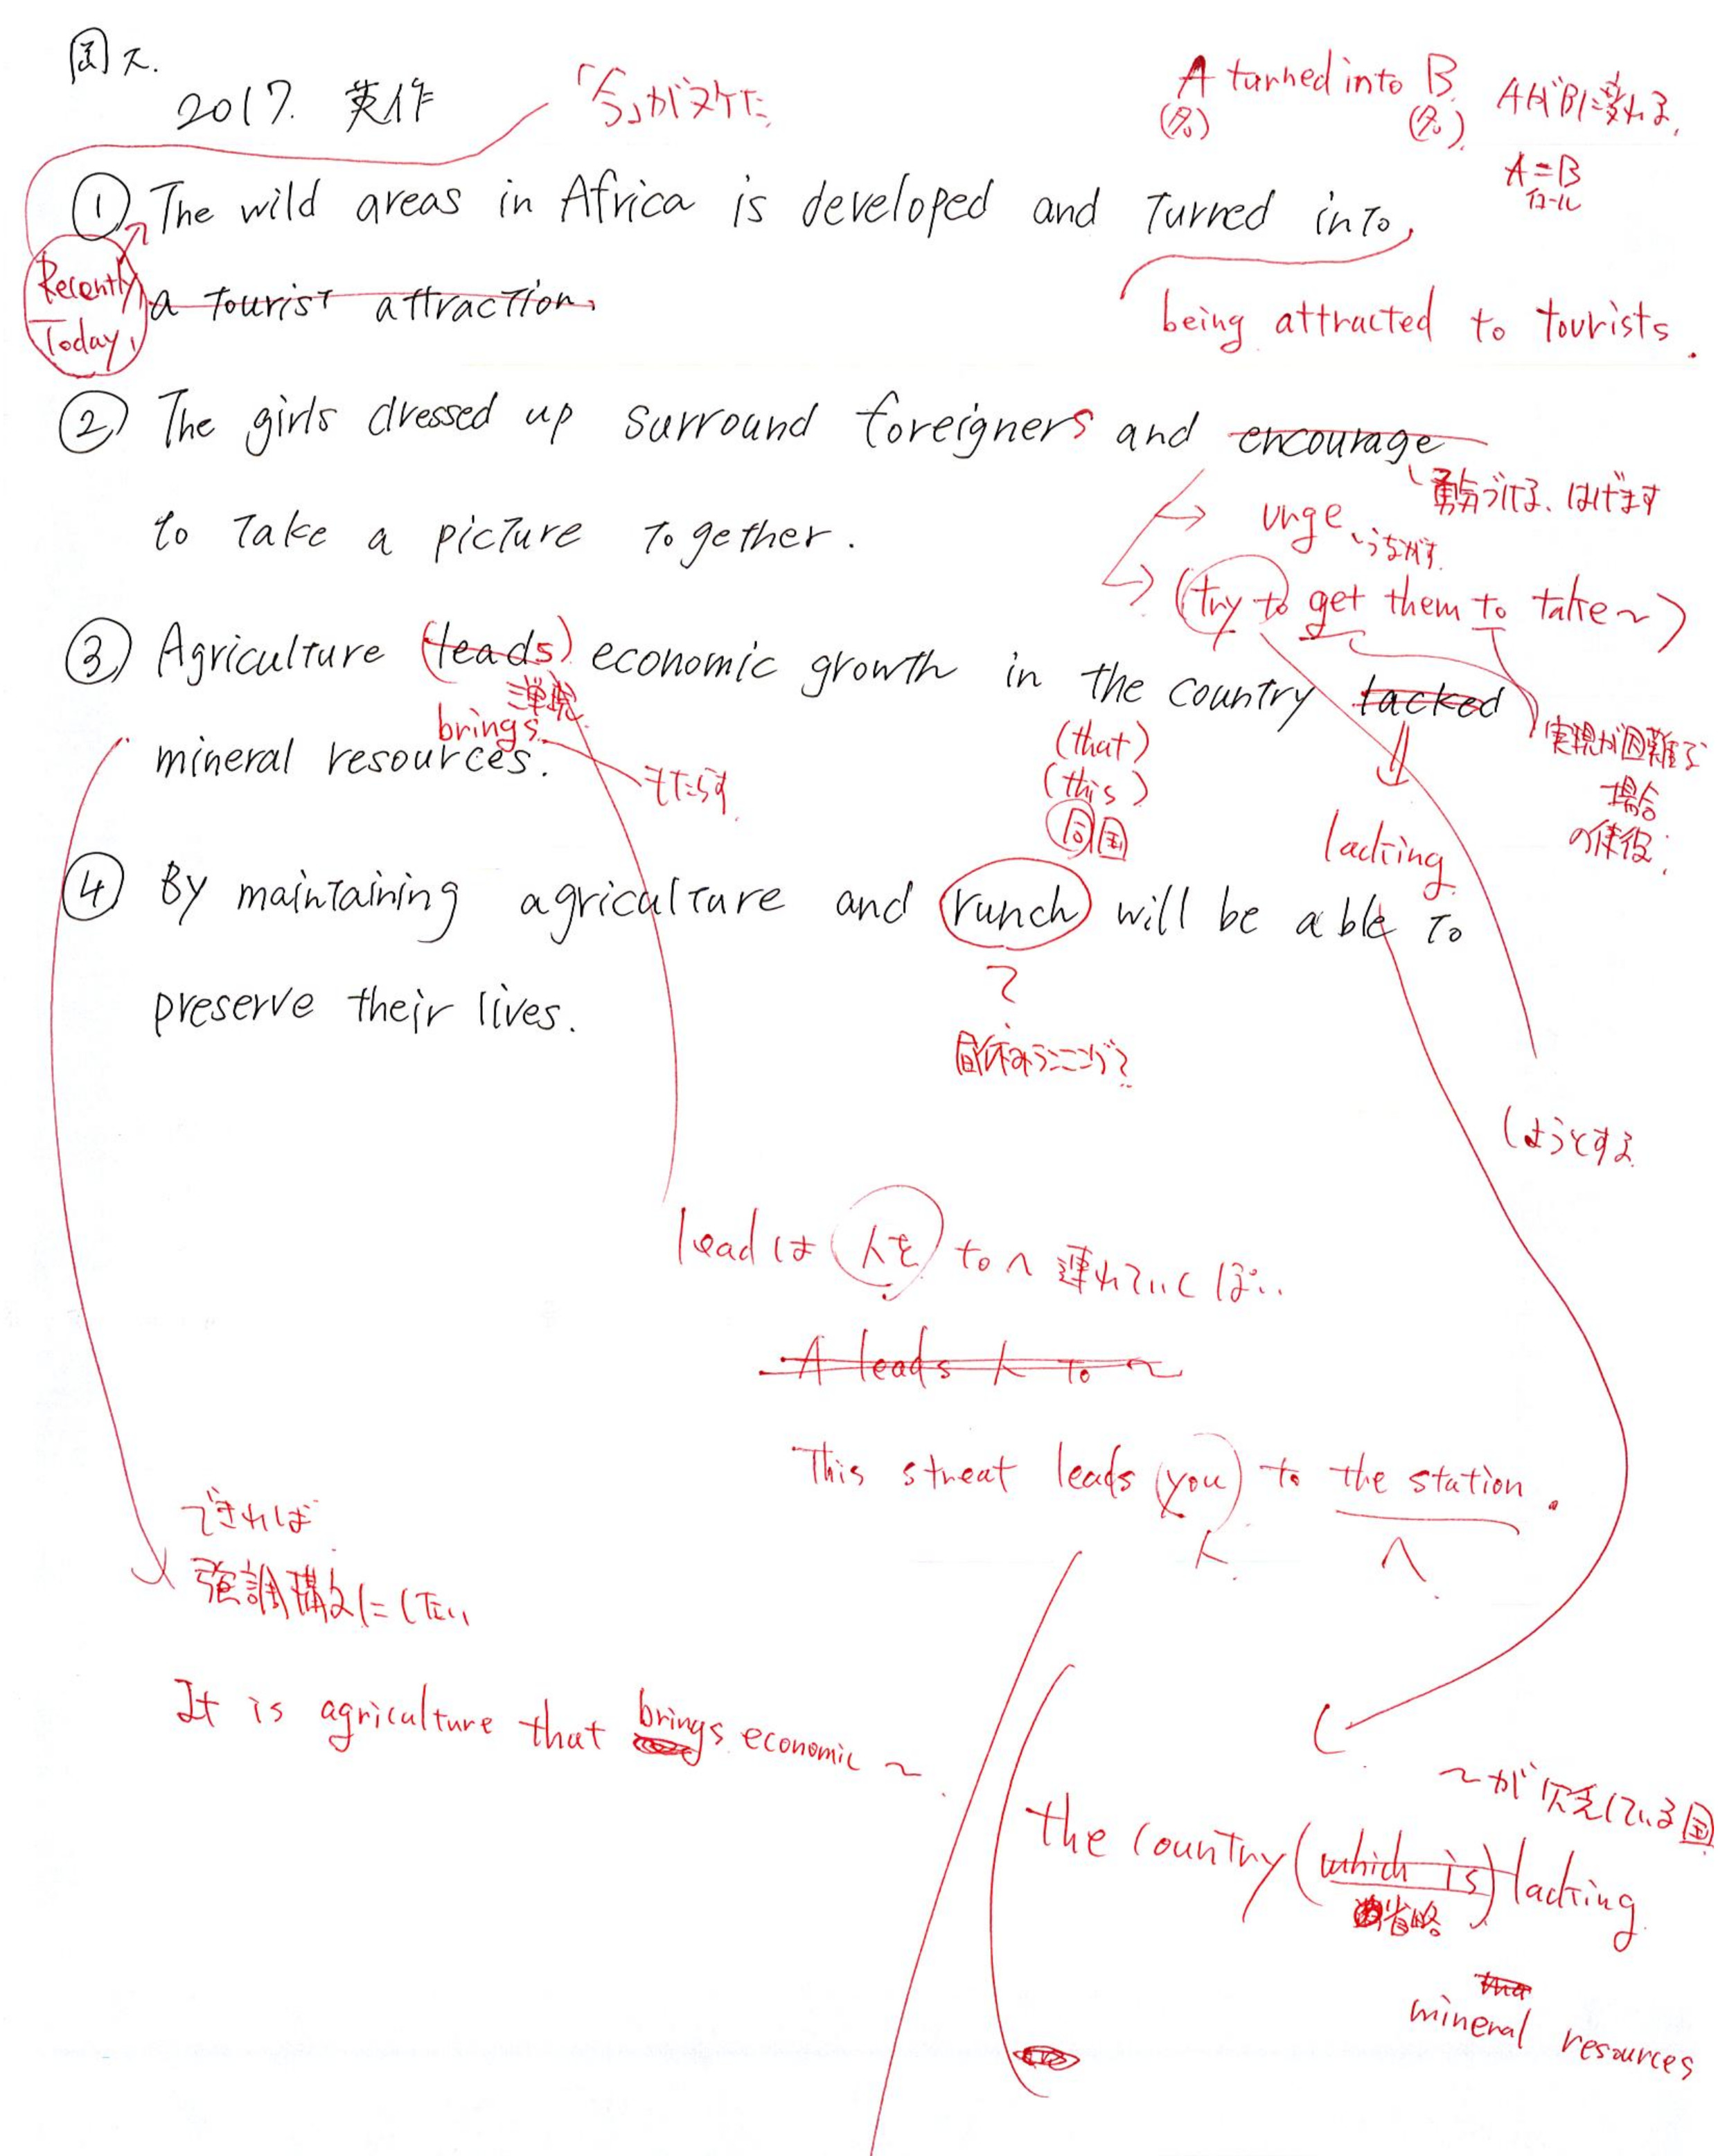 2017. 英作
「今」がヌケた
A turned into B
(名)
(名).
AがBに変わる.
A=B
イコール
① The wild areas in Africa is developed and turned into
Recently,
Today,
a tourist attraction.
being attracted to tourists.
② The girls dressed up surround foreigners and encourage
勇気づける、はげます
to take a picture together.
urge
うながす.
(try to get them to take~)
③ Agriculture (leads) economic growth in the country lacked
brings
もたらす
mineral resources.
(that)
(this)
同国
lacking
実現が困難な
場合
の使役.
④ By maintaining agriculture and runch will be able to
?
preserve their lives.
しようとする
lead は 人を to へ 連れていくっぽい..
A leads 人 to ~
This streat leads (you) to the station.
人
へ
できれば
強調構文にしたい
It is agriculture that brings economic ~
~が欠乏している国
the country (which is) lacking
省略
mineral resources